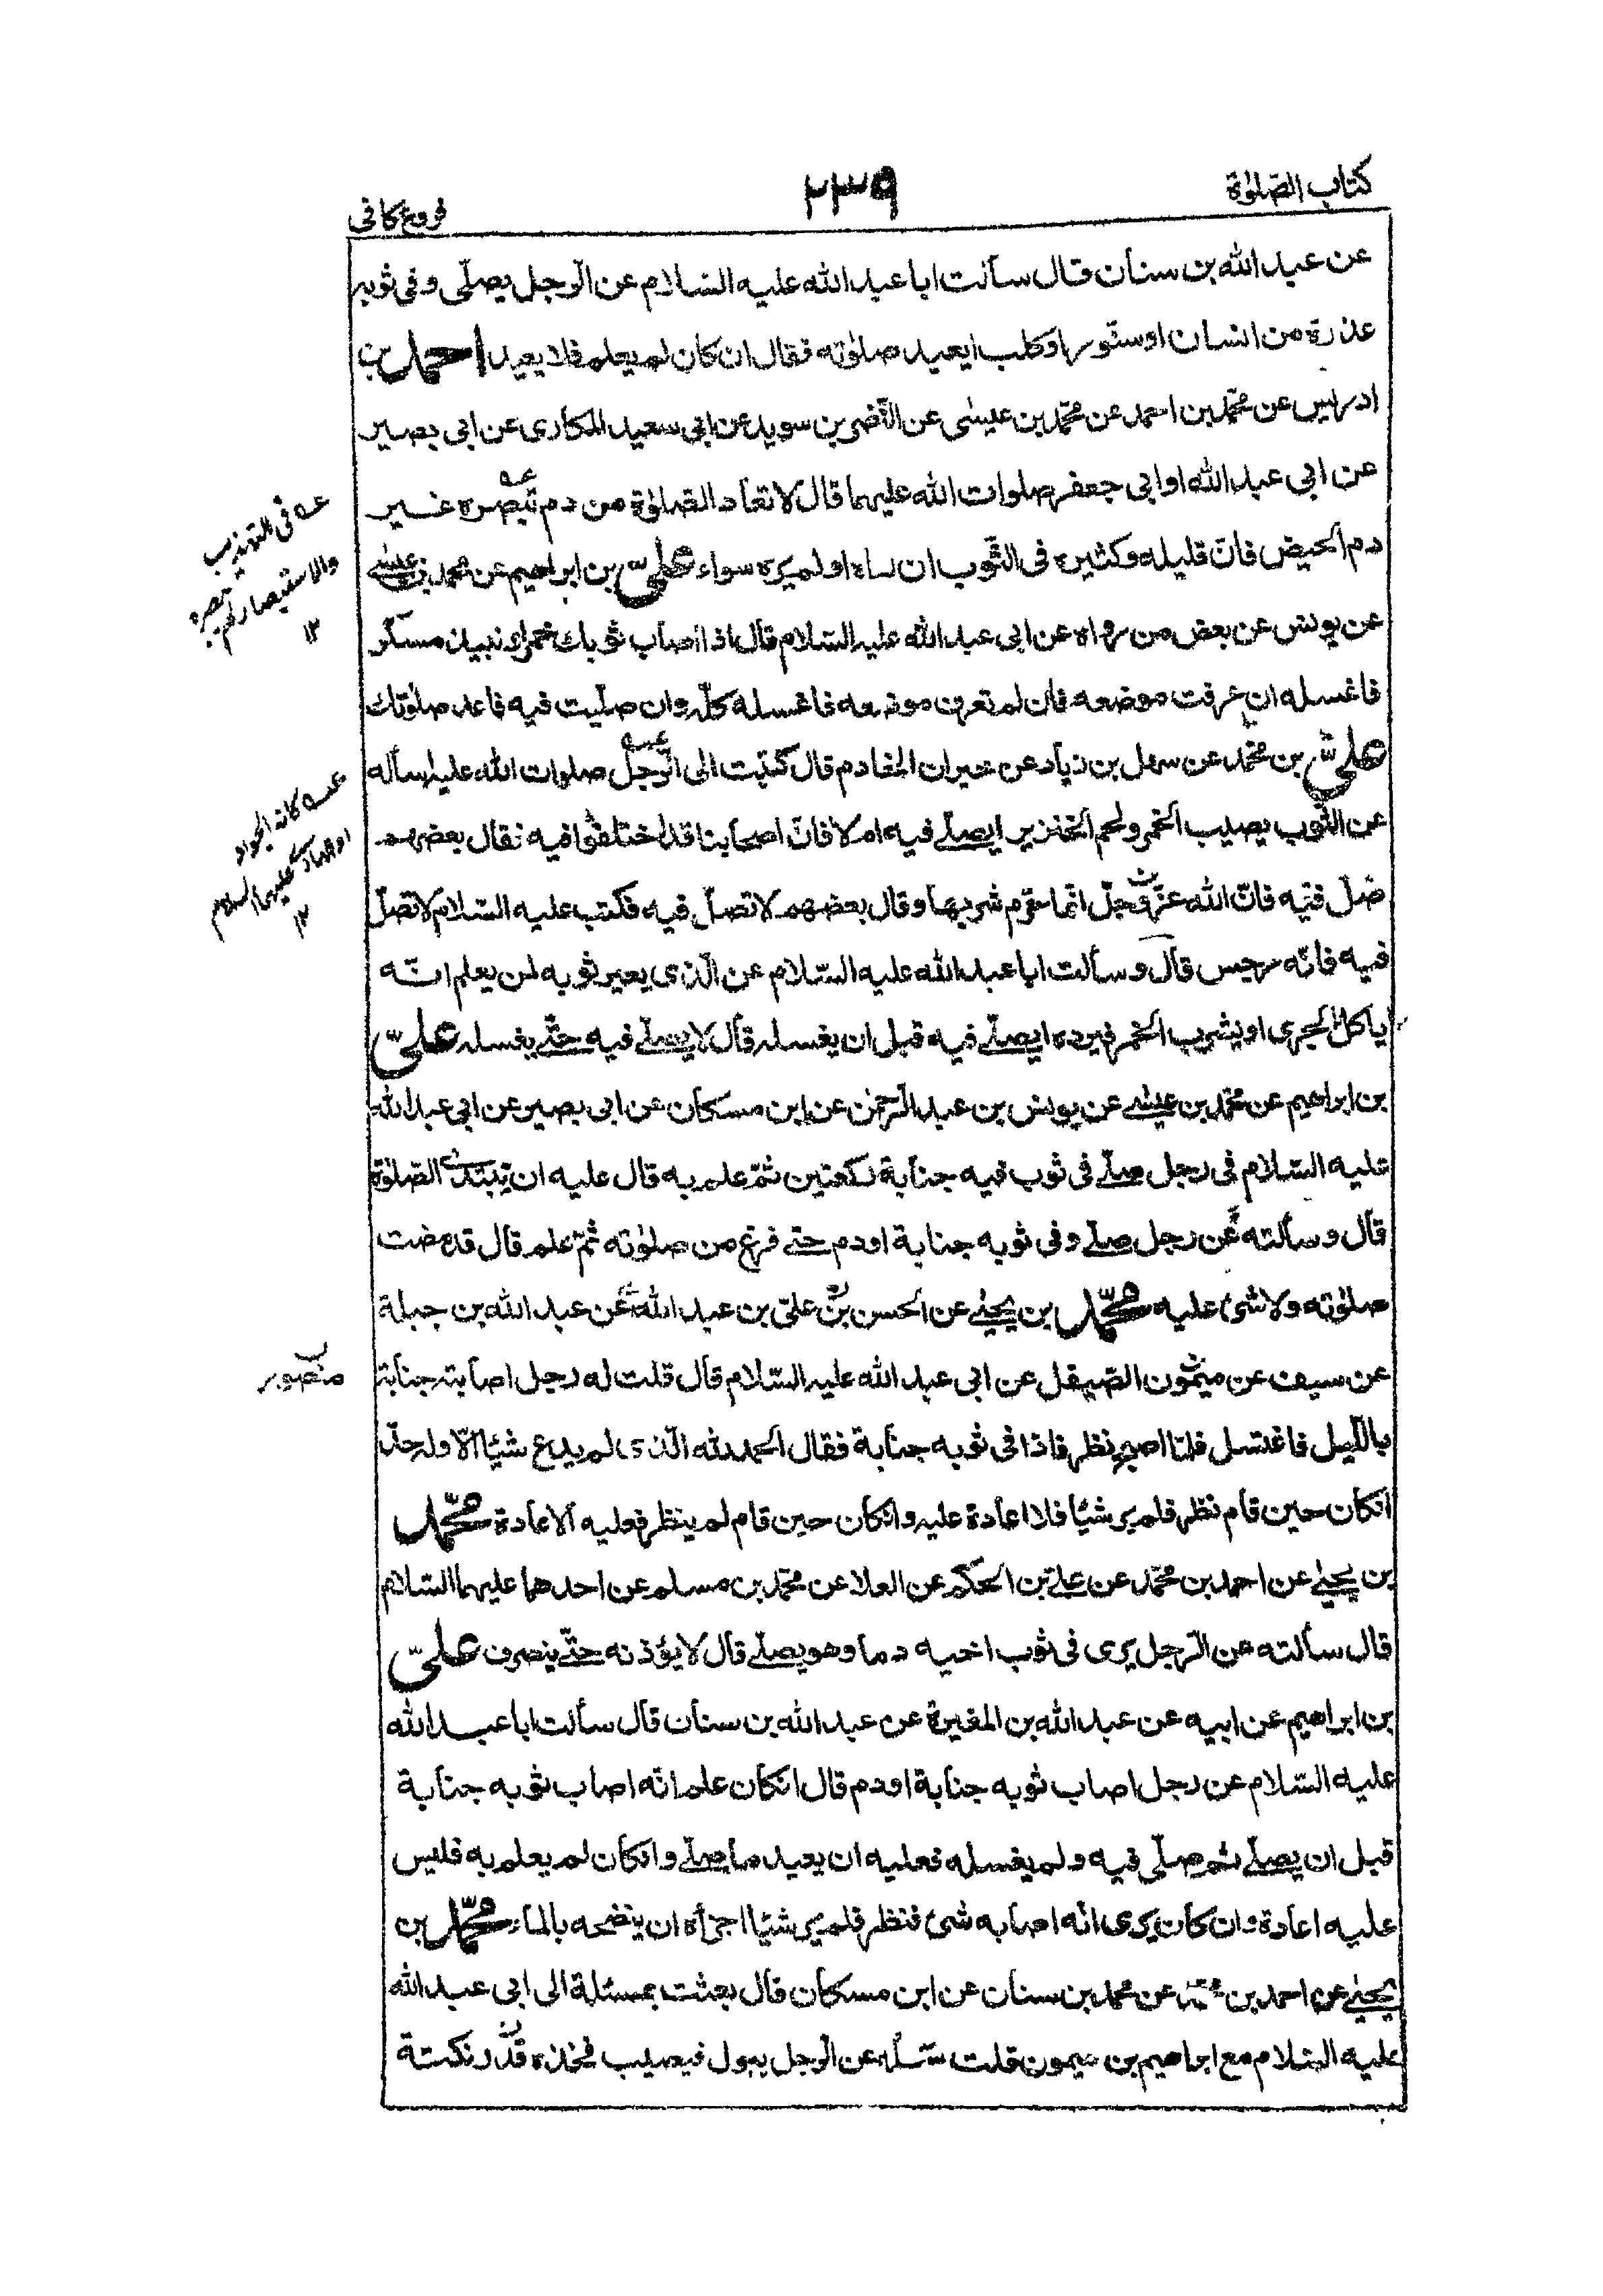 كتاب الصّلوٰة
٢٣٩
فروع كافى
عن عبد الله بن سنان قال سألت ابا عبد الله عليه السّلام عن الرّجل يصلّى وفى ثوبه
عذرة من انسان او سنّور او كلب ايعيد صلوٰته فقال ان كان لم يعلم فلا يعيد احمد بن
ادريس عن محمّد بن احمد عن محمّد بن عيسٰى عن النّضر بن سويد عن ابى سعيد المكارى عن ابى بصير
عن ابى عبد الله او ابى جعفر صلوات الله عليهما قال لا تعاد الصّلوٰة من دم تبصره غير
دم الحيض فانّ قليله وكثيره فى الثّوب ان راه او لم يره سواء علىّ بن ابراهيم عن محمد بن عيسٰى
عن يونس عن بعض من رواه عن ابى عبد الله عليه السّلام قال اذا اصاب ثوبك خمر او نبيذ مسكر
فاغسله ان عرفت موضعه فان لم تعرف موضعه فاغسله كلّه وان صلّيت فيه فاعد صلوٰتك
علىّ بن محمّد عن سهل بن زياد عن خيران الخادم قال كتبت الى الرّجل صلوات الله عليه اسأله
عن الثّوب يصيب الخمر ولحم الخنزير ايصلّے فيه ام لا فانّ اصحابنا قد اختلفوا فيه فقال بعضهم
صلّ فيه فانّ الله عزّ وجلّ انّما حرّم شربها وقال بعضهم لا تصلّ فيه فكتب عليه السّلام لا تصلّ
فيه فانّه رجس قال وسألت ابا عبد الله عليه السّلام عن الّذى يعير ثوبه لمن يعلم انّه
ياكل الجرى او يشرب الخمر فيرده ايصلّے فيه قبل ان يغسله قال لا يصلّے فيه حتّے يغسله علىّ
بن ابراهيم عن محمّد بن عيسٰے عن يونس بن عبد الرّحمٰن عن ابن مسكان عن ابى بصير عن ابى عبد الله
عليه السّلام فى رجل صلّے فى ثوب فيه جنابة ركعتين ثمّ علم به قال عليه ان يبتدئ الصّلوٰة
قال وسألته عن رجل صلّے وفى ثوبه جنابة او دم حتّے فرغ من صلوٰته ثمّ علم قال قد مضت
صلوٰته ولا شئ عليه محمّد بن يحيٰے عن الحسن بن علىّ بن عبد الله عن عبد الله بن جبلة
عن سيف عن ميمون الصّيقل عن ابى عبد الله عليه السّلام قال قلت له رجل اصابته جنابة
باللّيل فاغتسل فلمّا اصبح نظر فاذا فى ثوبه جنابة فقال الحمد لله الّذى لم يدع شيئا الّا وله حدّ
انكان حين قام نظر فلم ير شيئا فلا اعادة عليه وانكان حين قام لم ينظر فعليه الاعادة محمّد
بن يحيٰے عن احمد بن محمّد عن علے بن الحكم عن العلا عن محمّد بن مسلم عن احدهما عليهما السّلام
قال سألته عن الرّجل يرى فى ثوب اخيه دما وهو يصلّے قال لا يؤذنه حتّے ينصرف علىّ
بن ابراهيم عن ابيه عن عبد الله بن المغيرة عن عبد الله بن سنان قال سألت ابا عبد الله
عليه السّلام عن رجل اصاب ثوبه جنابة او دم قال انكان علم انّه اصاب ثوبه جنابة
قبل ان يصلّے ثم صلّى فيه ولم يغسله فعليه ان يعيد ما صلّے وانكان لم يعلم به فليس
عليه اعادة وان كان يرى انّه اصابه شئ فنظر فلم ير شيئا اجزأه ان ينضحه بالماء محمّد بن
يحيٰے عن احمد بن محمّد عن محمد بن سنان عن ابن مسكان قال بعثت بمسئلة الى ابى عبد الله
عليه السّلام مع ابراهيم بن ميمون قلت سَله عن الرّجل يبول فيصيب فخذه قدر نكتة
عـه فى التهذيب
والاستبصار لم يبصره
١٢
عـه كانه الجواد
او الهادى عليهما السلام
١٢
منصور